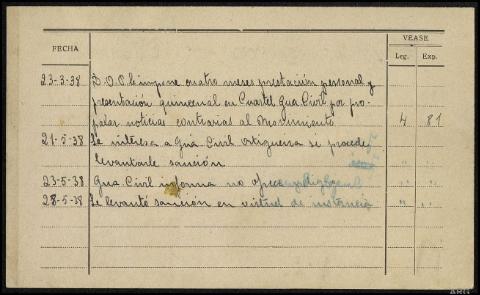 VEASE
FECHA
Leg. Exp.
23-3-38 D.O.P. le impone cuatro meses prestación personal y
presentación quincenal en Cuartel Gua. Civil por pro-
palar noticias contrarias al Movimiento 4 81
21-5-38 Se interesa a Gua. Civil Ortigueira si procede
levantarle sanción " "
23-5-38 Gua. Civil informa no " "
28-5-38 Se levantó sanción en virtud de instancia " "